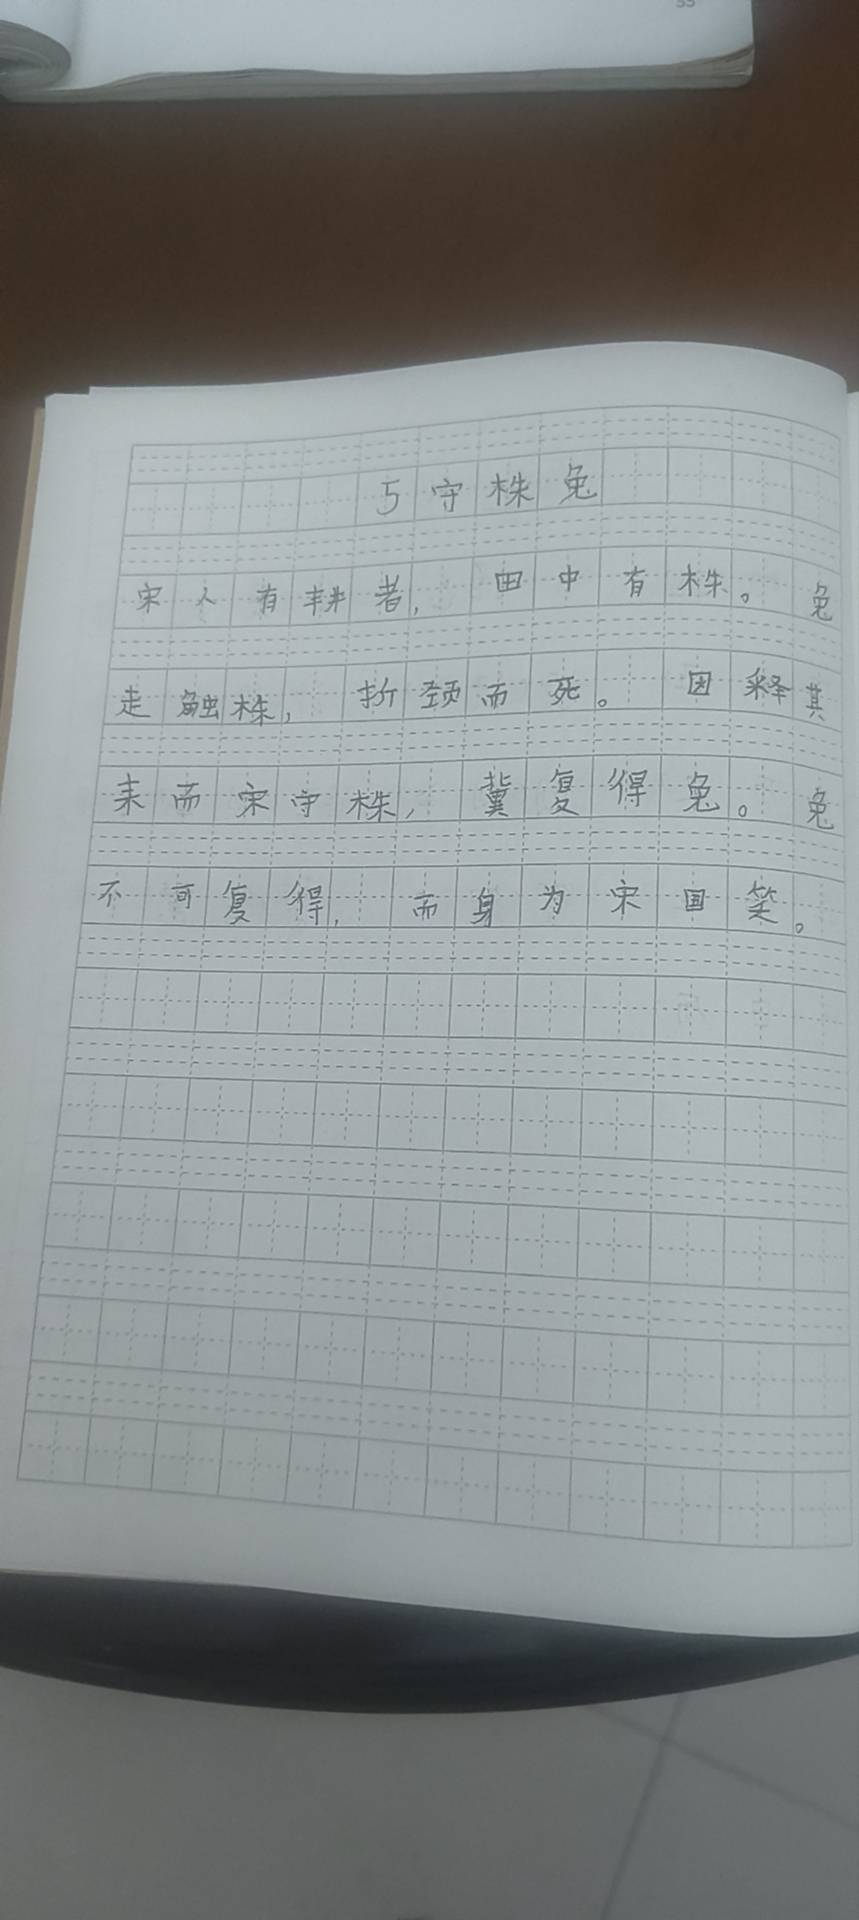 55
5守株兔
宋人有耕者,田中有株。兔
走触株,折颈而死。因释其
耒而宋守株,冀复得兔。兔
不可复得,而身为宋国笑。